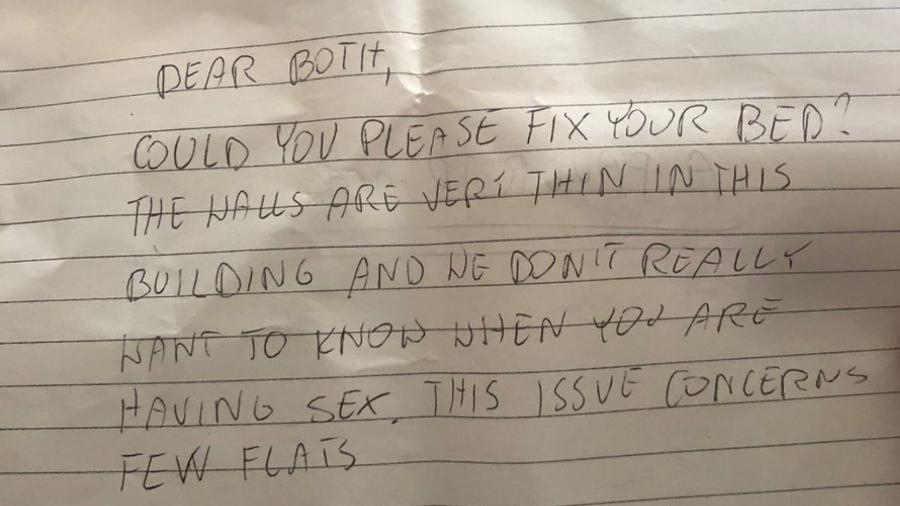 DEAR BOTH,
COULD YOU PLEASE FIX YOUR BED?
THE WALLS ARE VERY THIN IN THIS
BUILDING AND WE DON'T REALLY
WANT TO KNOW WHEN YOU ARE
HAVING SEX. THIS ISSUE CONCERNS
FEW FLATS